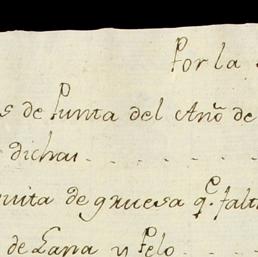 Por la
de Punta del Año de
dichas . . . . . .
de gruesa q.e falt
de Lana y Pelo . . . .